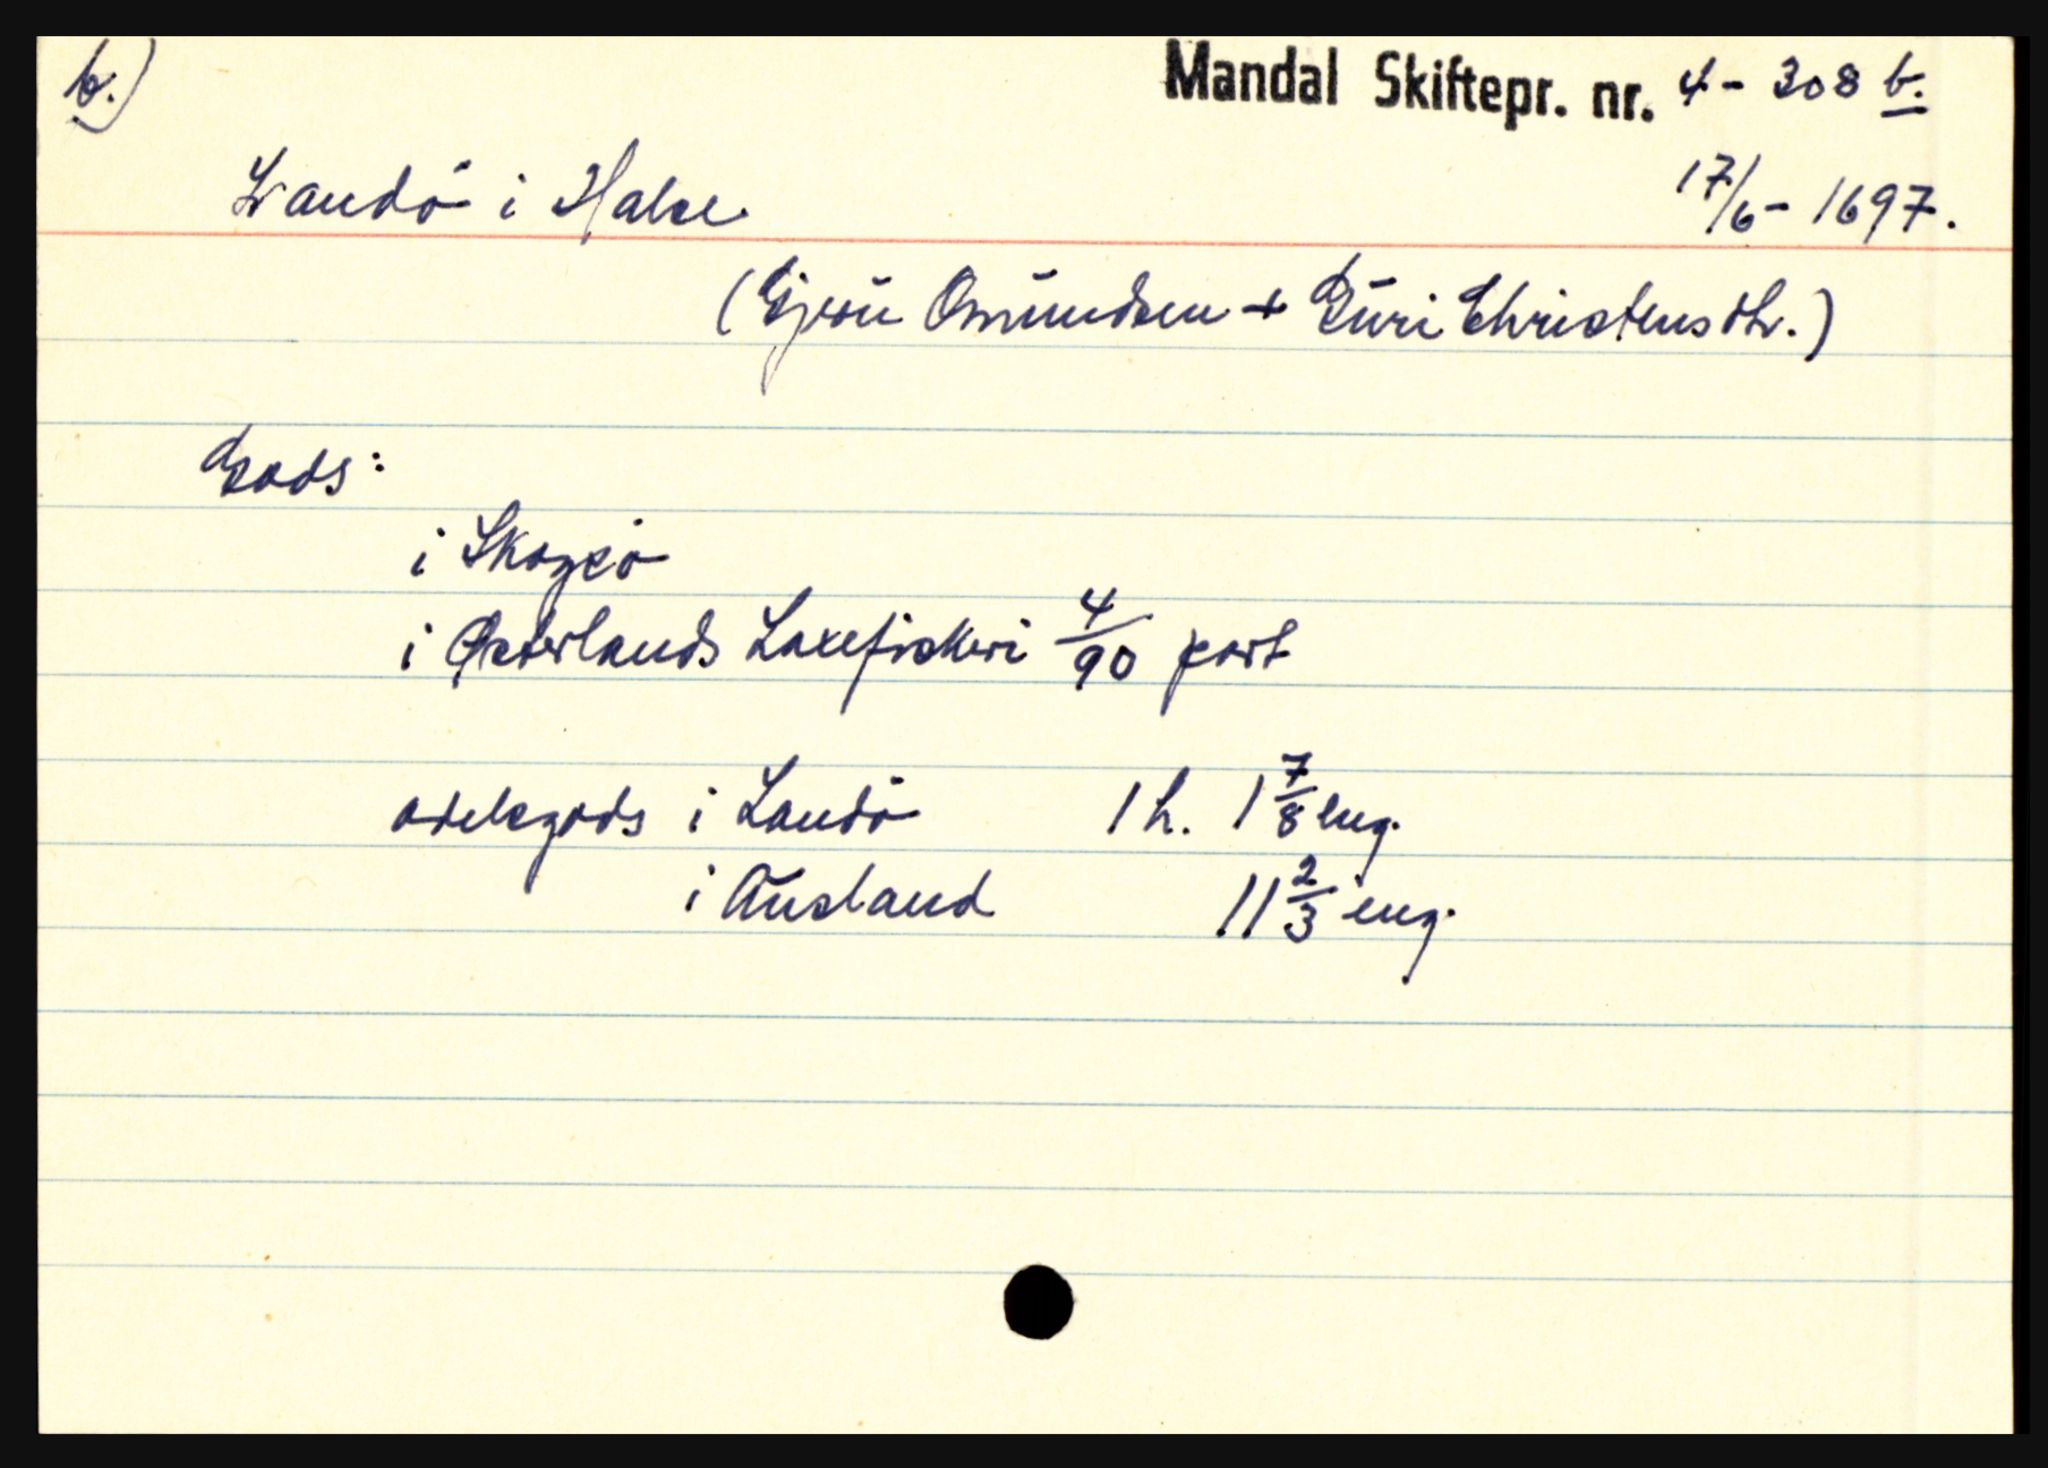 b.)
Mandal Skiftepr. nr. 4-308 b.
Landö i Halse
17/6-1697.
(Gjerü Omŭndsen + Gŭri Christensdtr.)
Gods:
i Skogsö
i Østerlands Laxefiskeri 4/90 part
odelsgods i Landö 1 h. 1 7/8 eng.
i Aŭsland 11 2/3 eng.